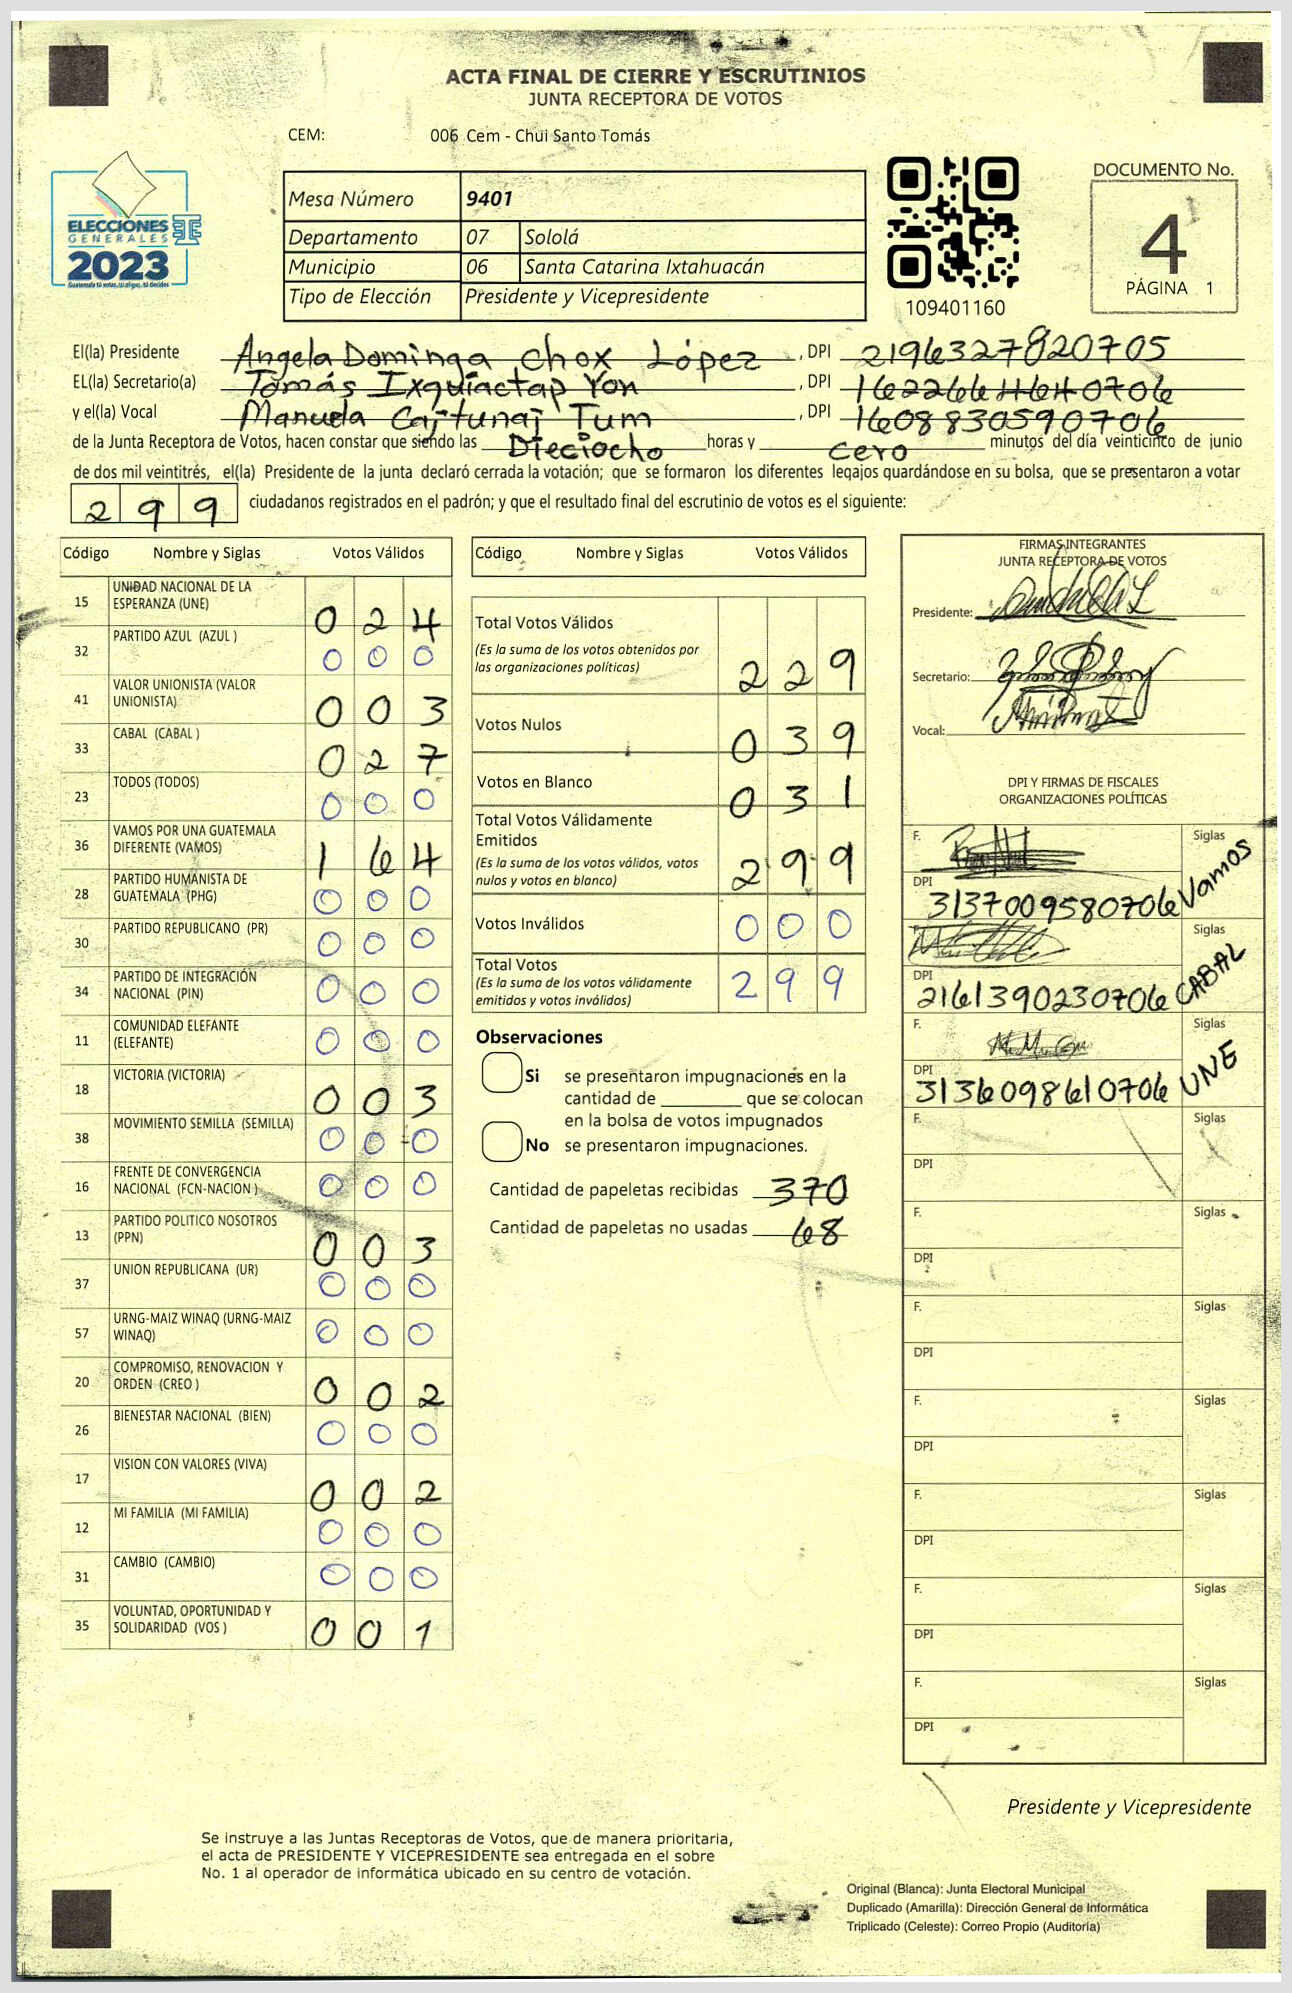 ACTA FINAL DE CIERRE Y ESCRUTINIOS
JUNTA RECEPTORA DE VOTOS
CEM: 006 Cem - Chui Santo Tomás
ELECCIONES
GENERALES
2023
Guatemala tú votas, tú eliges, tú decides
Mesa Número 9401
Departamento 07 Sololá
Municipio 06 Santa Catarina Ixtahuacán
Tipo de Elección Presidente y Vicepresidente
109401160
DOCUMENTO No.
4
PÁGINA 1
El(la) Presidente Angela Dominga Chox López, DPI 2196327820705
EL(la) Secretario(a) Tomás Ixquiactap Yon, DPI 1622666464 0706
y el(la) Vocal Manuela Cajtunaj Tum, DPI 1608830590706
de la Junta Receptora de Votos, hacen constar que siendo las Dieciocho horas y cero minutos del día veinticinco de junio
de dos mil veintitrés, el(la) Presidente de la junta declaró cerrada la votación; que se formaron los diferentes legajos guardándose en su bolsa, que se presentaron a votar
299 ciudadanos registrados en el padrón; y que el resultado final del escrutinio de votos es el siguiente:
Código Nombre y Siglas Votos Válidos
15 UNIDAD NACIONAL DE LA ESPERANZA (UNE) 0 2 4
32 PARTIDO AZUL (AZUL ) 0 0 0
41 VALOR UNIONISTA (VALOR UNIONISTA) 0 0 3
33 CABAL (CABAL ) 0 2 7
23 TODOS (TODOS) 0 0 0
36 VAMOS POR UNA GUATEMALA DIFERENTE (VAMOS) 1 6 4
28 PARTIDO HUMANISTA DE GUATEMALA (PHG) 0 0 0
30 PARTIDO REPUBLICANO (PR) 0 0 0
34 PARTIDO DE INTEGRACIÓN NACIONAL (PIN) 0 0 0
11 COMUNIDAD ELEFANTE (ELEFANTE) 0 0 0
18 VICTORIA (VICTORIA) 0 0 3
38 MOVIMIENTO SEMILLA (SEMILLA) 0 0 0
16 FRENTE DE CONVERGENCIA NACIONAL (FCN-NACION ) 0 0 0
13 PARTIDO POLITICO NOSOTROS (PPN) 0 0 3
37 UNION REPUBLICANA (UR) 0 0 0
57 URNG-MAIZ WINAQ (URNG-MAIZ WINAQ) 0 0 0
20 COMPROMISO, RENOVACION Y ORDEN (CREO ) 0 0 2
26 BIENESTAR NACIONAL (BIEN) 0 0 0
17 VISION CON VALORES (VIVA) 0 0 2
12 MI FAMILIA (MI FAMILIA) 0 0 0
31 CAMBIO (CAMBIO) 0 0 0
35 VOLUNTAD, OPORTUNIDAD Y SOLIDARIDAD (VOS ) 0 0 1
Código Nombre y Siglas Votos Válidos
Total Votos Válidos 2 2 9
(Es la suma de los votos obtenidos por
las organizaciones políticas)
Votos Nulos 0 3 9
Votos en Blanco 0 3 1
Total Votos Válidamente
Emitidos 2 9 9
(Es la suma de los votos válidos, votos
nulos y votos en blanco)
Votos Inválidos 0 0 0
Total Votos 2 9 9
(Es la suma de los votos válidamente
emitidos y votos inválidos)
Observaciones
Si se presentaron impugnaciones en la
cantidad de ________ que se colocan
en la bolsa de votos impugnados
No se presentaron impugnaciones.
Cantidad de papeletas recibidas 370
Cantidad de papeletas no usadas 68
FIRMAS INTEGRANTES
JUNTA RECEPTORA DE VOTOS
Presidente:
Secretario:
Vocal:
DPI Y FIRMAS DE FISCALES
ORGANIZACIONES POLÍTICAS
F. Siglas
DPI 3137009580706 Vamos
Siglas
DPI 2161390230706 CABAL
F. Siglas
DPI 3136098610706 UNE
F. Siglas
DPI
F. Siglas
DPI
F. Siglas
DPI
F. Siglas
DPI
F. Siglas
DPI
F. Siglas
DPI
F. Siglas
DPI
Presidente y Vicepresidente
Se instruye a las Juntas Receptoras de Votos, que de manera prioritaria,
el acta de PRESIDENTE Y VICEPRESIDENTE sea entregada en el sobre
No. 1 al operador de informática ubicado en su centro de votación.
Original (Blanca): Junta Electoral Municipal
Duplicado (Amarilla): Dirección General de Informática
Triplicado (Celeste): Correo Propio (Auditoría)